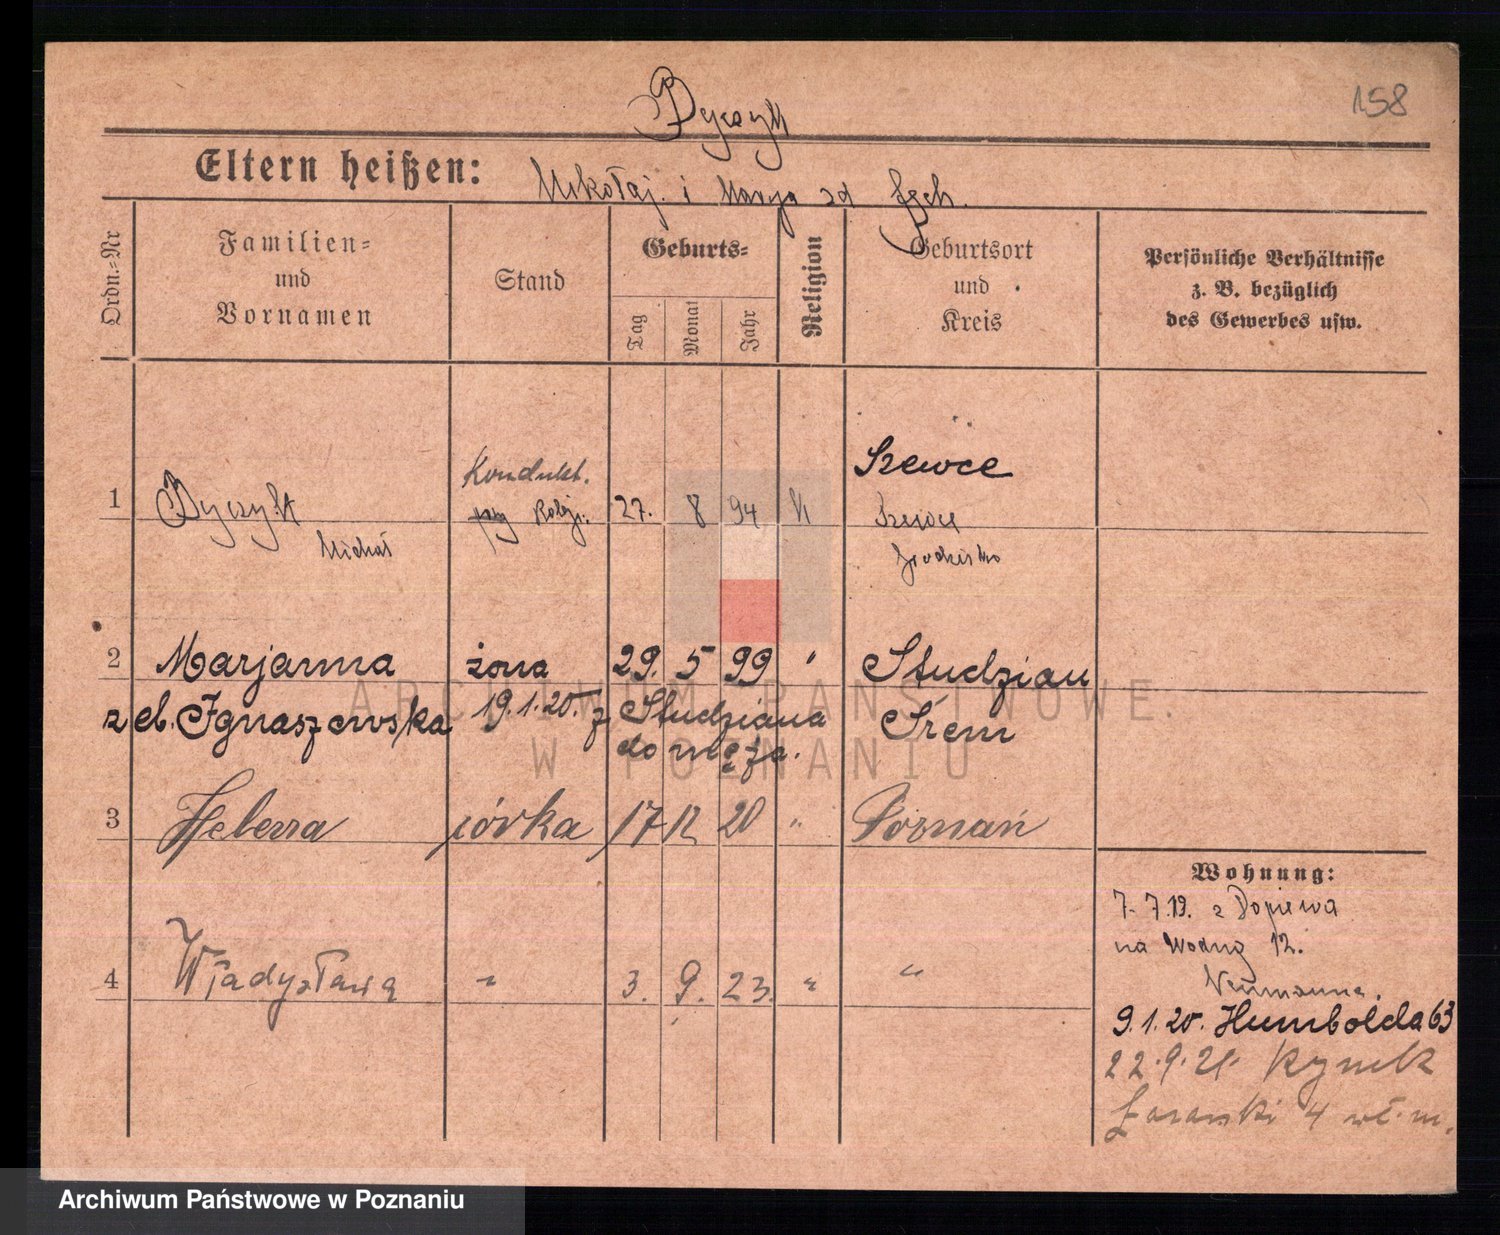 158
Dyczyk
Eltern heißen: Mikołaj i Marya zd
Ordn.=Nr
Familien=
und
Vornamen
Stand
Geburts=
Tag
Monat
Jahr
Religion
Geburtsort
und
Kreis
Persönliche Verhältnisse
z. B. bezüglich
des Gewerbes usw.
1 Dyczyk
Michał
Kondukt.
przy Kolej.
27. 8 94 K
Szewce
Szewce
Grodzisko
2 Marjanna żona 29. 5 99 " Studzian
z eb. Ignaszewska 19.1.20. z Studziana Śrem
do męża.
3 Helena córka 17 12 20 " Poznań
4 Władysława " 3. 9. 23. " "
Wohnung:
7. 7.19. z Dopiewa
na Wodną 12.
Neumanna.
9.1.20. Humbolda 63
22.9.21. Rynek
Łazarski 4 wł. m.
ARCHIWUM PAŃSTWOWE
W POZNANIU
Archiwum Państwowe w Poznaniu